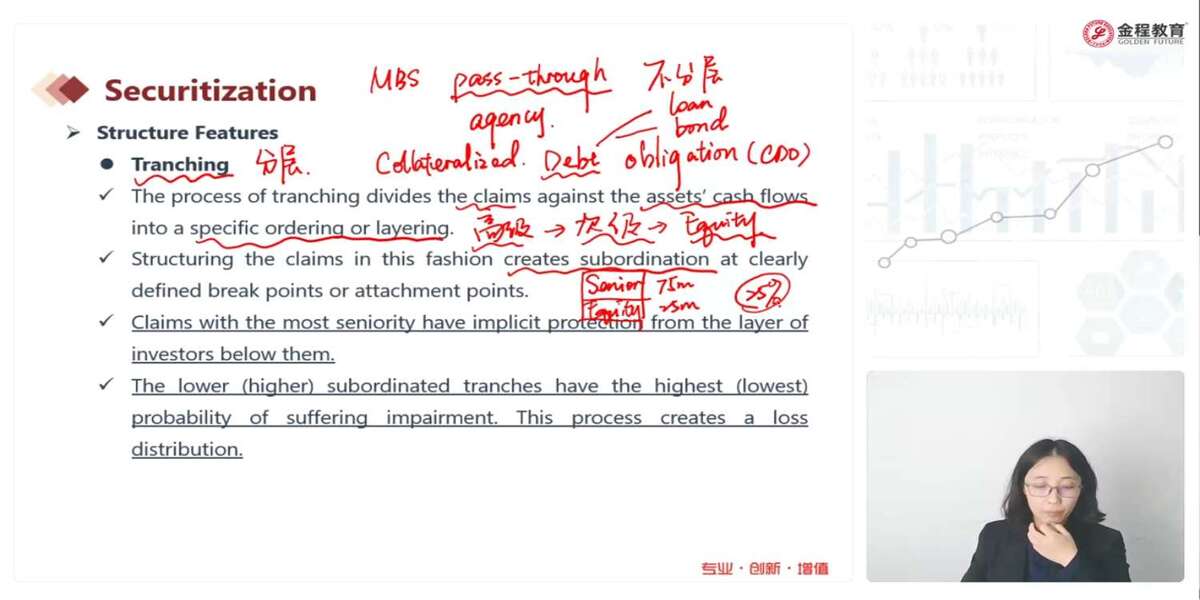 金程教育
GOLDEN FUTURE
MBS pass-through 不分层
Securitization
agency.
loan
bond
➢ Structure Features
● Tranching 分层. Collateralized. Debt obligation (CDO)
✓ The process of tranching divides the claims against the assets' cash flows
into a specific ordering or layering. 高级 → 次级 → Equity
✓ Structuring the claims in this fashion creates subordination at clearly
defined break points or attachment points.
Senior 75m
Equity 25m
25%
✓ Claims with the most seniority have implicit protection from the layer of
investors below them.
✓ The lower (higher) subordinated tranches have the highest (lowest)
probability of suffering impairment. This process creates a loss
distribution.
专业·创新·增值